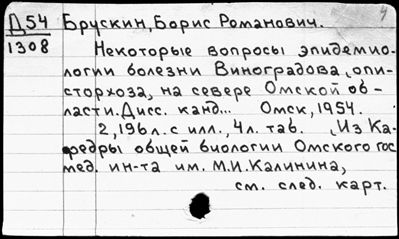 Д54 Брускин, Борис Романович. 4
1308
Некоторые вопросы эпидемио-
логии болезни Виноградова, опи-
сторхоза, на севере Омской об-
ласти. Дисс. канд... Омск, 1954.
2, 196 л. с илл., 4 л. таб. (Из Ка-
федры общей биологии Омского гос
мед. ин-та им. М.И.Калинина,
см. след. карт.